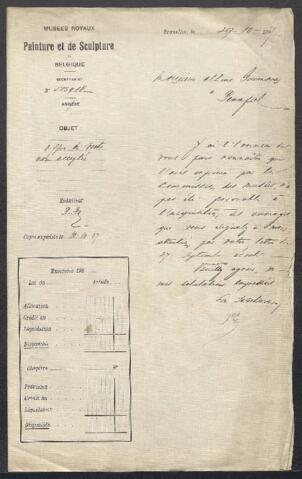 MUSÉES ROYAUX
DE
Peinture et de Sculpture
DE
BELGIQUE
SECRÉTARIAT
N°
ANNEXE
OBJET
Offre de vente
non acceptée
Rédacteur
Copie expédiée le
Exercice 190
Loi du
Article
Allocation
Crédit
Liquidation
Disponible
Chapitre
Prévision
Crédit
Liquidation
Disponible
Bruxelles, le
Monsieur
à
J'ai l'honneur de
vous faire connaître que
l'avis exprimé par la
Commission des musées, n'a
pas été favorable à
l'acquisition des ouvrages
que vous signalez à mon
attention, par votre lettre du
27 septembre
Veuillez agréer, M
mes salutations empressées
Le Secrétaire